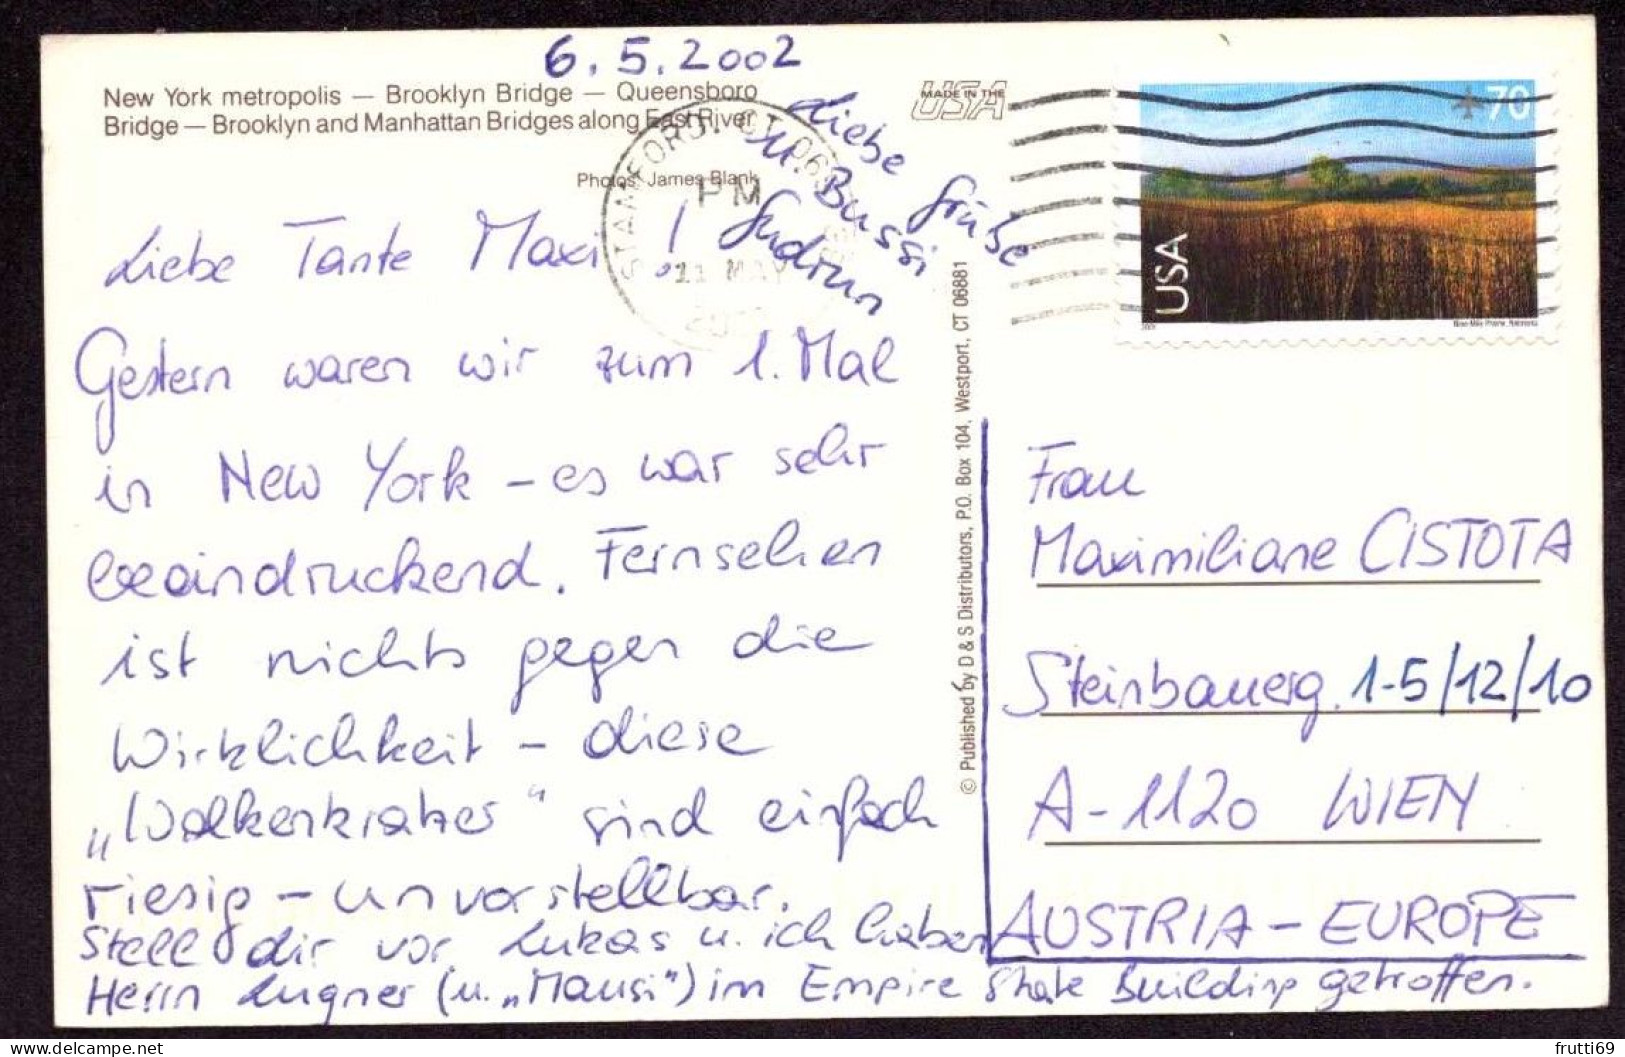 6.5.2002
New York metropolis — Brooklyn Bridge — Queensboro
Bridge — Brooklyn and Manhattan Bridges along East River
Photos: James Blank
MADE IN THE
USA
STAMFORD, CT 069
PM
11 MAY
70
USA
2001
Nine-Mile Prairie, Nebraska
Liebe Tante Maxi!
Gestern waren wir zum 1. Mal
in New York – es war sehr
beeindruckend. Fernsehen
ist nichts gegen die
Wirklichkeit – diese
„Wolkenkratzer" sind einfach
riesig – unvorstellbar.
Stell dir vor Lukas u. ich haben
Herrn Lugner (u. „Mausi") im Empire State Building getroffen.
Liebe Grüße
u. Bussi
Gudrun
© Published by D & S Distributors, P.O. Box 104, Westport, CT 06881
Frau
Maximiliane CISTOTA
Steinbauerg. 1-5/12/10
A-1120 WIEN
AUSTRIA – EUROPE
delcampe.net
frutti69